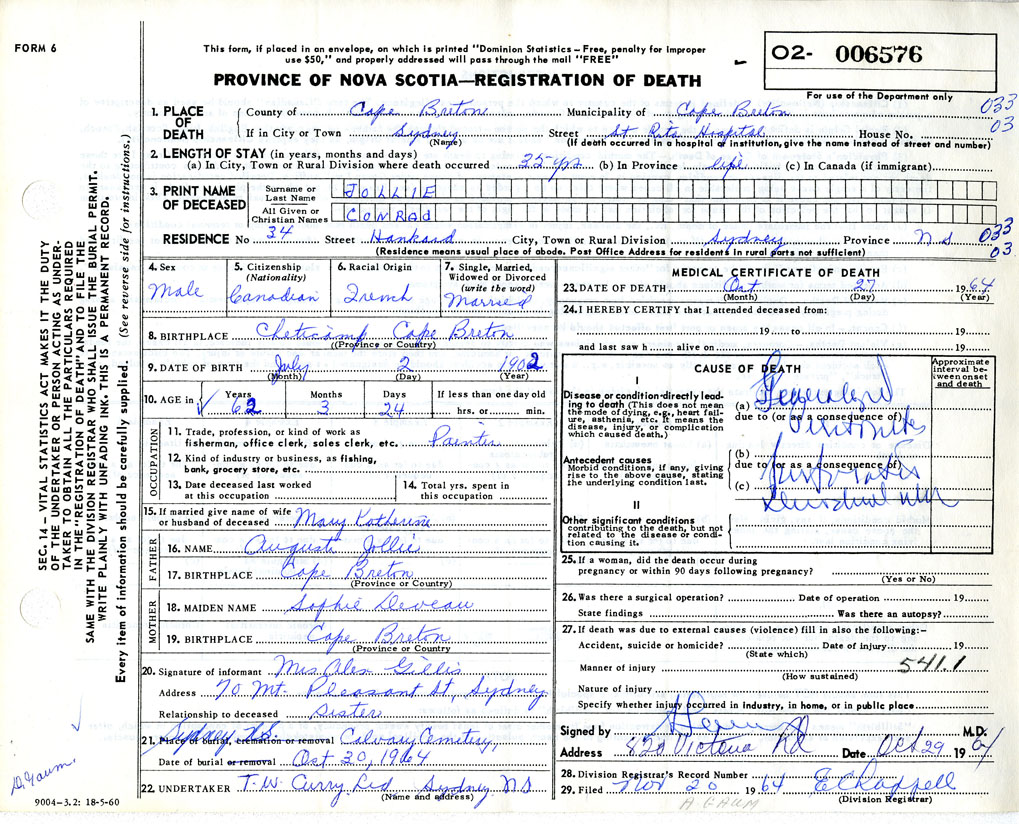 FORM 6
This form, if placed in an envelope, on which is printed "Dominion Statistics – Free, penalty for improper
use $50," and properly addressed will pass through the mail "FREE"
PROVINCE OF NOVA SCOTIA—REGISTRATION OF DEATH
02- 006576
For use of the Department only
033
03
1. PLACE OF DEATH
County of Cape Breton Municipality of Cape Breton
If in City or Town Sydney Street St Rita Hospital House No.
(Name) (If death occurred in a hospital or institution, give the name instead of street and number)
2. LENGTH OF STAY (in years, months and days)
(a) In City, Town or Rural Division where death occurred 35 yrs (b) In Province life (c) In Canada (if immigrant)
3. PRINT NAME OF DECEASED
Surname or Last Name JOLLIE
All Given or Christian Names CONRAd
RESIDENCE No 34 Street Hankard City, Town or Rural Division Sydney Province N S 033
03
(Residence means usual place of abode. Post Office Address for residents in rural parts not sufficient)
4. Sex Male
5. Citizenship (Nationality) Canadian
6. Racial Origin French
7. Single, Married, Widowed or Divorced (write the word) Married
8. BIRTHPLACE Cheticamp Cape Breton
(Province or Country)
9. DATE OF BIRTH July 2 1902
(Month) (Day) (Year)
10. AGE in Years 62 Months 3 Days 24 If less than one day old hrs. or min.
OCCUPATION
11. Trade, profession, or kind of work as
fisherman, office clerk, sales clerk, etc. Painter
12. Kind of industry or business, as fishing,
bank, grocery store, etc.
13. Date deceased last worked
at this occupation
14. Total yrs. spent in
this occupation
15. If married give name of wife
or husband of deceased Mary Katherine
FATHER
16. NAME August Jollie
17. BIRTHPLACE Cape Breton
(Province or Country)
MOTHER
18. MAIDEN NAME Sophie Deveau
19. BIRTHPLACE Cape Breton
(Province or Country)
20. Signature of informant Mrs Alex Gillis
Address 70 Mt. Pleasant St, Sydney
Relationship to deceased Sister
Sydney N.S.
21. Place of burial, cremation or removal Calvary Cemetery,
Date of burial or removal Oct 30, 1964
22. UNDERTAKER T. W. Curry Ltd Sydney NS
(Name and address)
MEDICAL CERTIFICATE OF DEATH
23. DATE OF DEATH Oct 27 1964
(Month) (Day) (Year)
24. I HEREBY CERTIFY that I attended deceased from:
19 to 19
and last saw h alive on 19
CAUSE OF DEATH
Approximate interval between onset and death
I
Disease or condition directly leading to death (This does not mean the mode of dying, e.g., heart failure, asthenia, etc. It means the disease, injury, or complication which caused death.)
(a) Generalized
due to (or as a consequence of)
Peritonitis
Antecedent causes
Morbid conditions, if any, giving rise to the above cause, stating the underlying condition last.
(b)
due to (or as a consequence of)
(c)
II
Other significant conditions
contributing to the death, but not related to the disease or condition causing it.
25. If a woman, did the death occur during
pregnancy or within 90 days following pregnancy?
(Yes or No)
26. Was there a surgical operation? Date of operation 19
State findings Was there an autopsy?
27. If death was due to external causes (violence) fill in also the following:–
Accident, suicide or homicide? Date of injury 19
(State which)
Manner of injury 541.1
(How sustained)
Nature of injury
Specify whether injury occurred in industry, in home, or in public place
Signed by M.D.
Address Victoria Rd Date Oct 29 1964
28. Division Registrar's Record Number
29. Filed Nov 20 1964 E Chappell
(Division Registrar)
A GAUM
SEC. 14 – VITAL STATISTICS ACT MAKES IT THE DUTY
OF THE UNDERTAKER OR PERSON ACTING AS UNDER-
TAKER TO OBTAIN ALL THE PARTICULARS REQUIRED
IN THE "REGISTRATION OF DEATH" AND TO FILE THE
SAME WITH THE DIVISION REGISTRAR WHO SHALL ISSUE THE BURIAL PERMIT.
WRITE PLAINLY WITH UNFADING INK. THIS IS A PERMANENT RECORD.
Every item of information should be carefully supplied. (See reverse side for instructions.)
D. Gaum.
9004–3.2: 18-5-60